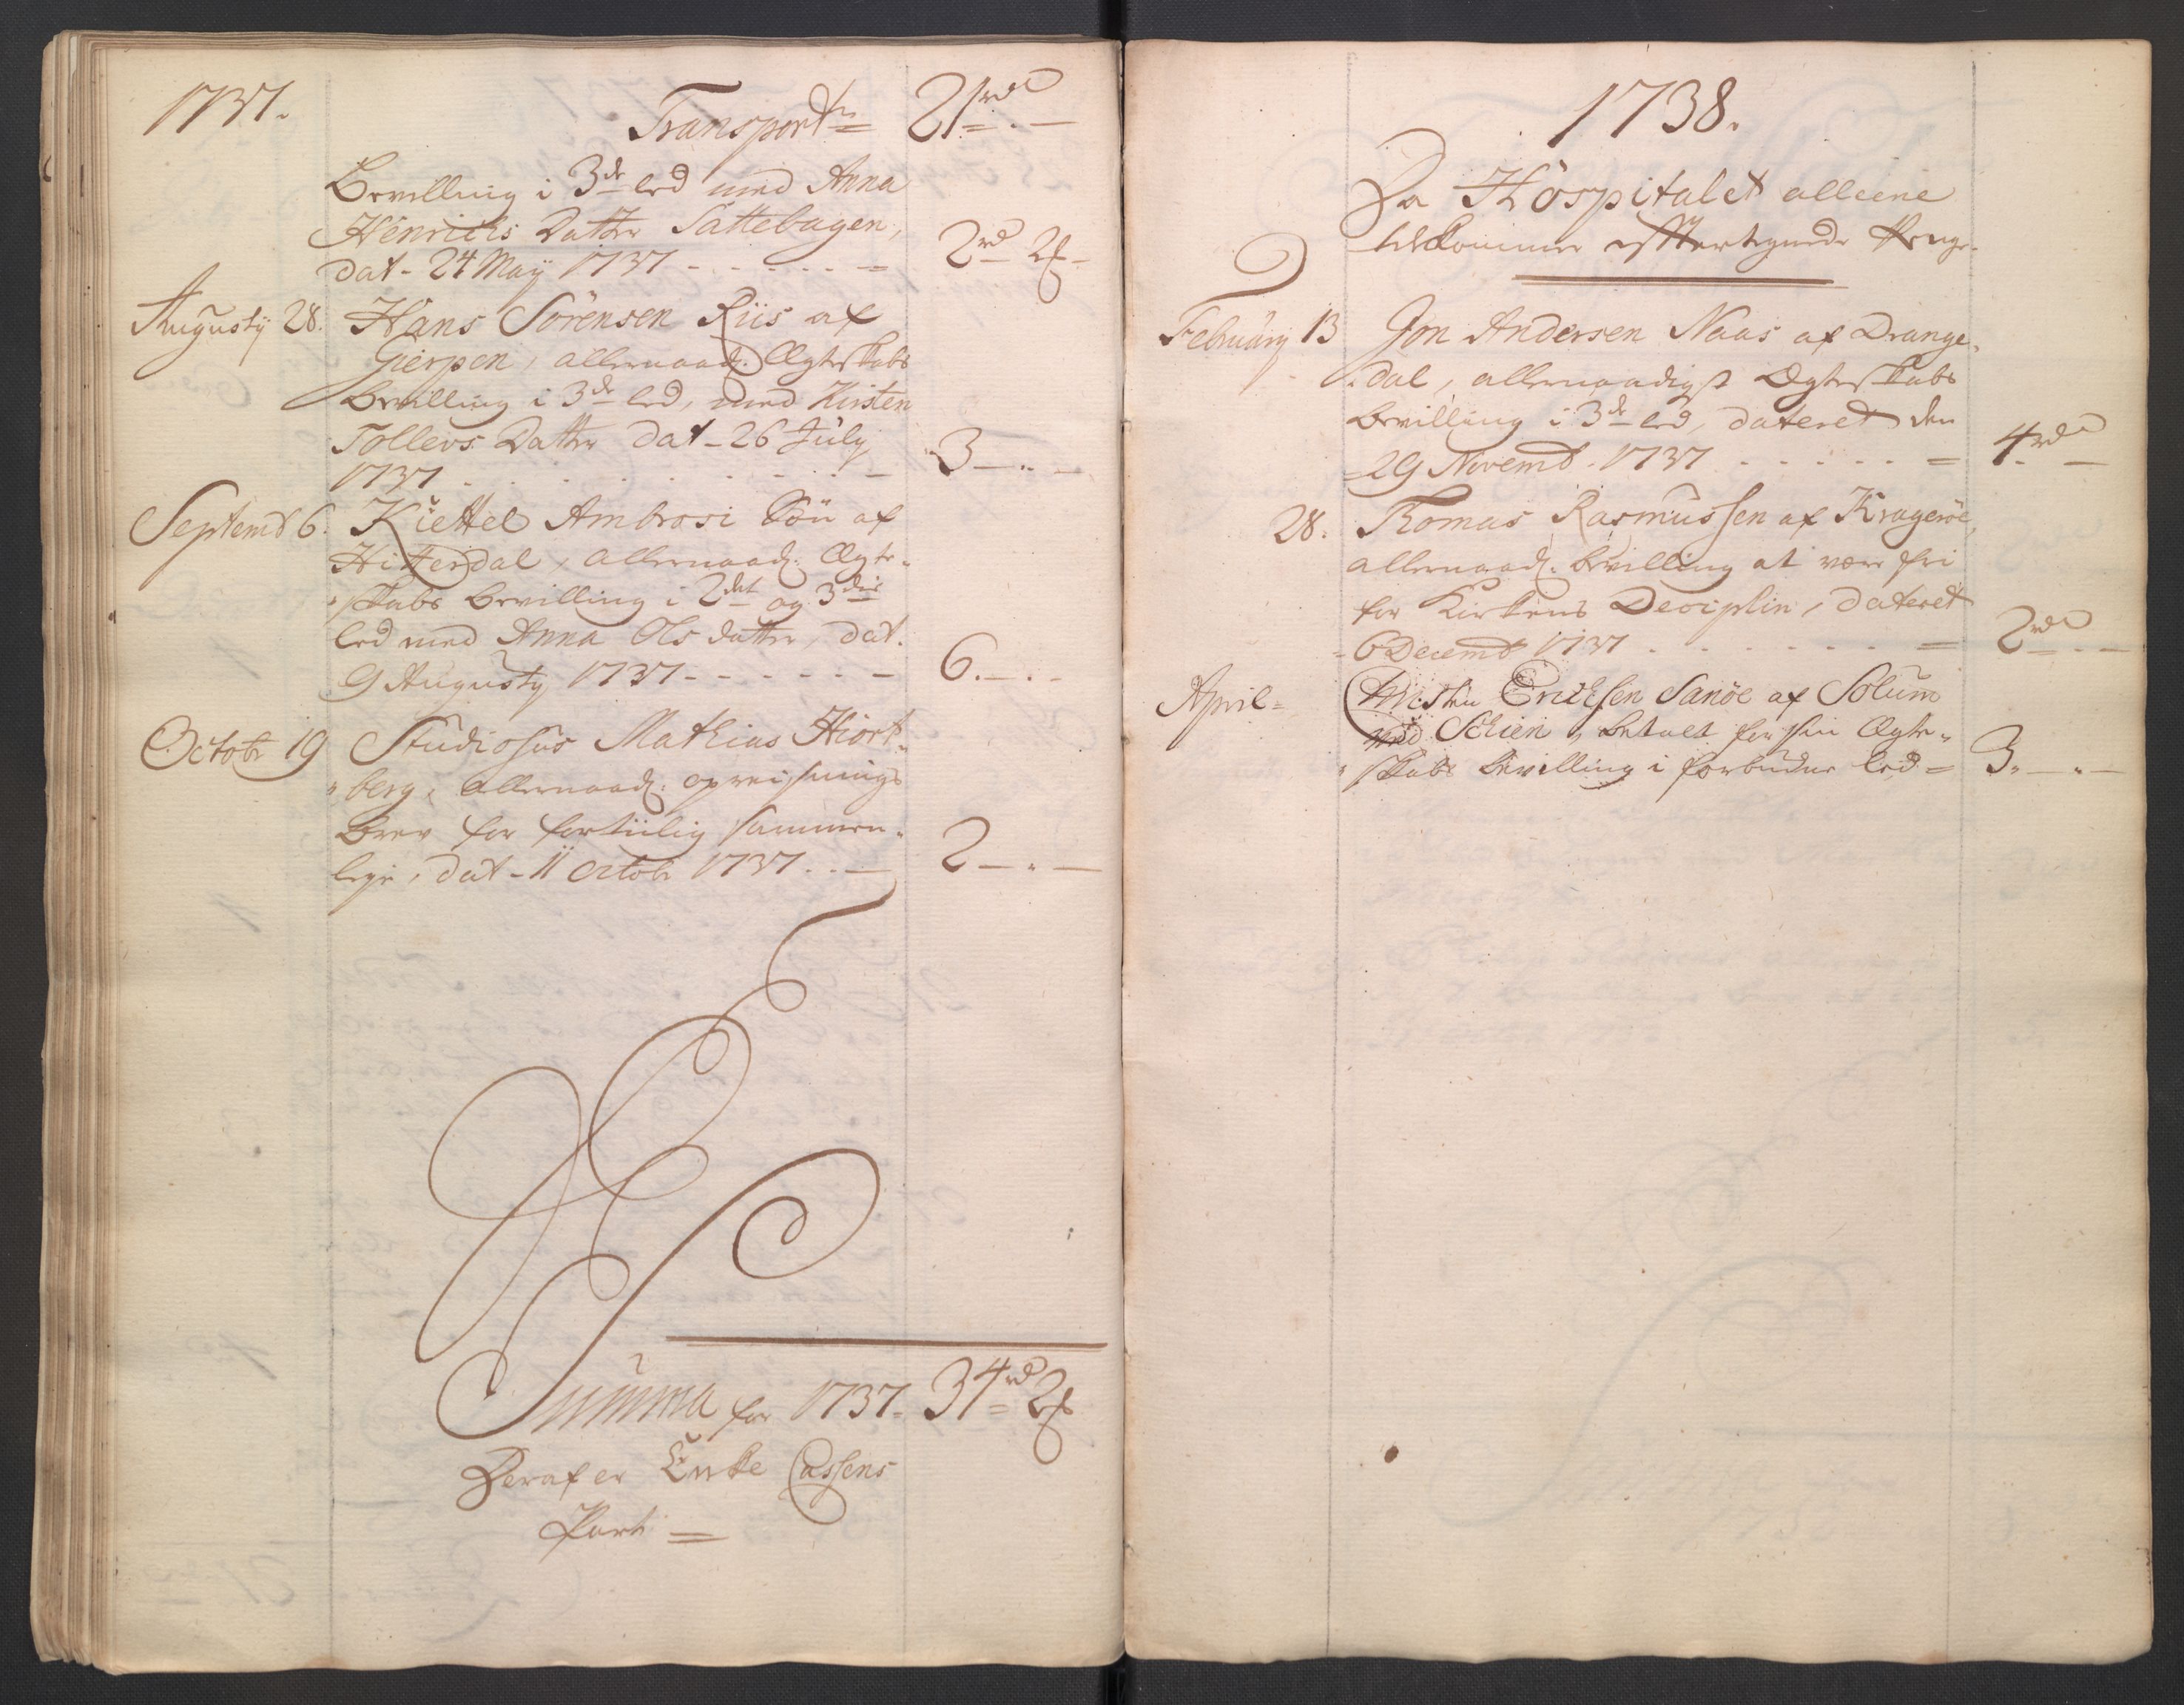 1737.
Transport = 21 rd = . —
Bevilling i 3de led med Anna
Henrichs Datter Sattebagen,
dat. 24 Maÿ 1737 - - - - - = 2 rd 2 s -
Augustÿ 28. Hans Sörensen Riis af
Gierpen, allernaad: Ægteskabs
bevilling i 3de led, med Kirsten
Tollevs Datter dat. 26 Julÿ
1737 . . . . . . . — 3 — . —
Septembr 6. Kiettel Ambrosi Sön af
Hitterdal, allernaad: Ægte-
skabs bevilling i 2det og 3die
led med Anna Ols datter, dat.
9 Augustÿ 1737 - - - - - — 6. — . -
Octobr 19 Studiosus Mathias Hiort-
berg, allernaad: opreisnings
brev for fortiilig sammen-
leje, dat. 11 Octobr 1737 . . — 2 — . —
Summa for 1737. 34 rd = 2 s
Deraf er Enke Cassens
Part =
1738.
Da Hospitalet alleene
tilkommer efftertegnede Penge.
February 13 Jon Andersen Naas af Drange-
dal, allernaadigst Ægteskabs
bevilling i 3de led, dateret den
29 Novembr. 1737 . - - - - = 4 rd —
28. Thomas Rasmussen af Kragerøe,
allernaad: bevilling at være fri
for Kirkens Deciplin, dateret
6 Decembr 1737 . . . . . . = 2 rd = . —
April = Christen Erichsen Sanöe af Solum
ved Schien, betalt for sin Ægte-
skabs bevilling i forbudne led = 3. — . —